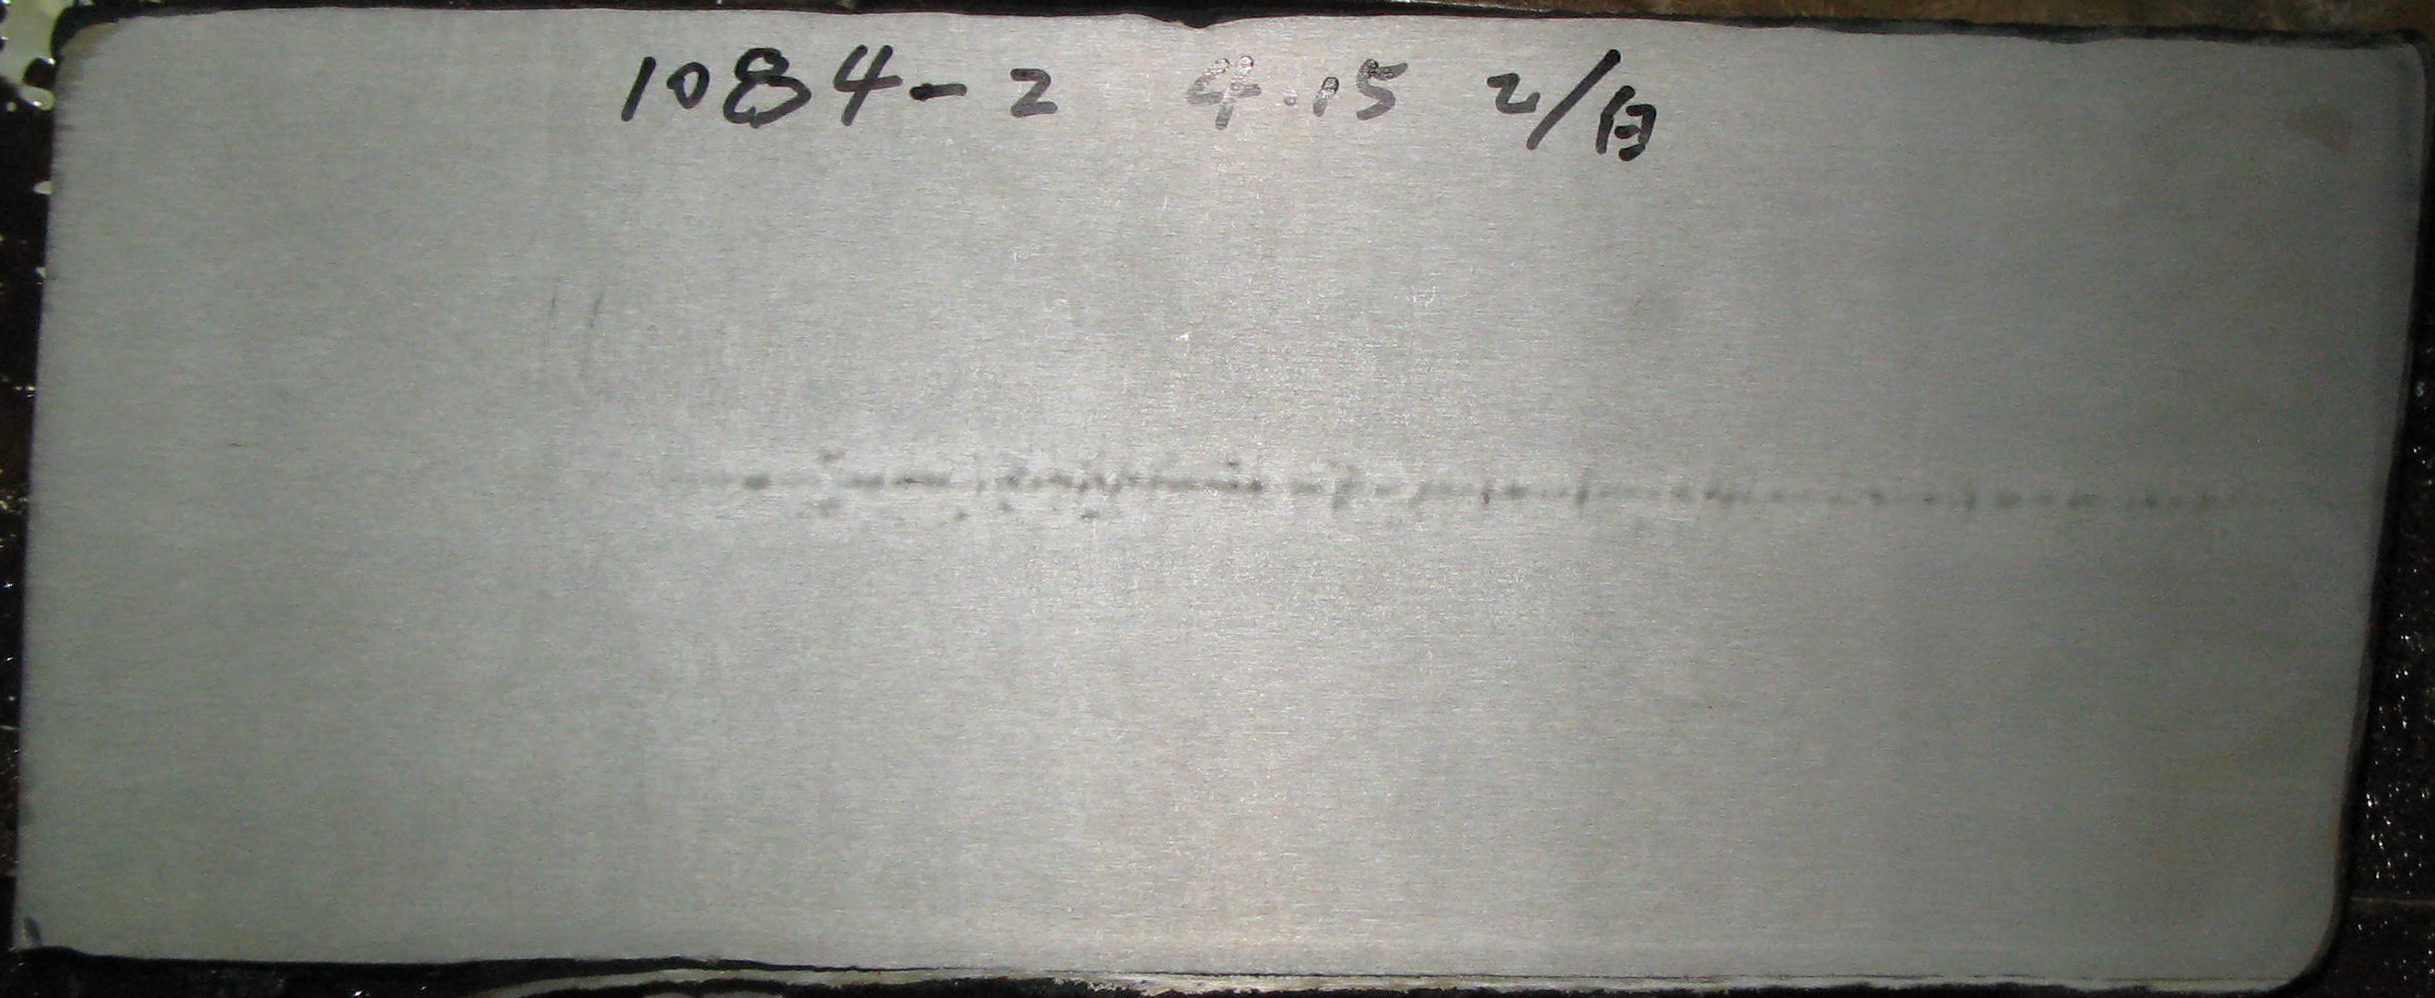 1084-2 4.15 2/白